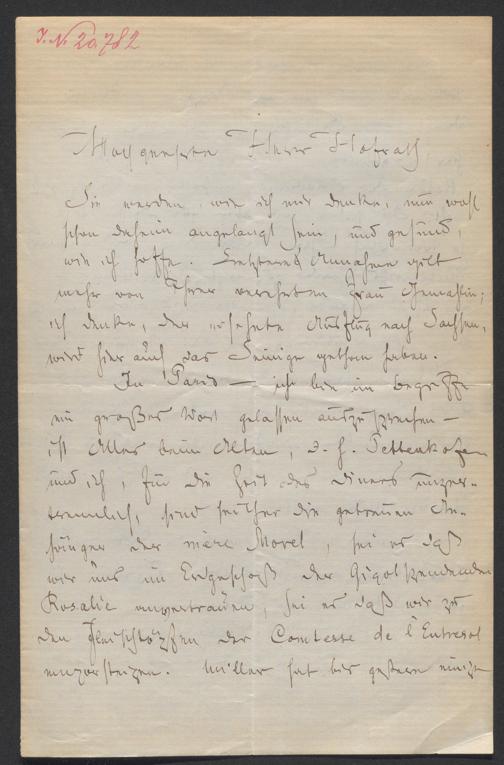 J. N. 20.782
Hochgeehrter Herr Hofrath
Sie werden, wie ich mir denke, nun wohl
schon daheim angelangt sein, und gesund,
wie ich hoffe. Letztere Annahme gilt
mehr von Ihrer verehrten Frau Gemahlin;
ich denke, der ersehnte Ausflug nach Sachsen,
wird hier auch das Seinige gethan haben.
In Paris — ich bin im Begriffe
ein großes Wort gelassen auszusprechen —
ist Alles beim Alten, d. h. Pettenkofen
und ich, für die Zeit des Diners unzer-
trennlich, sind seither die getreuen An-
hänger der mère Morel, sei es daß
wir uns im Erdgeschoß der Gigot spendenden
Rosalie anvertrauen, sei es daß wir zu
den Fleischtöpfen der Comtesse de l'Entresol
emporsteigen. Müller hat bis gestern einige